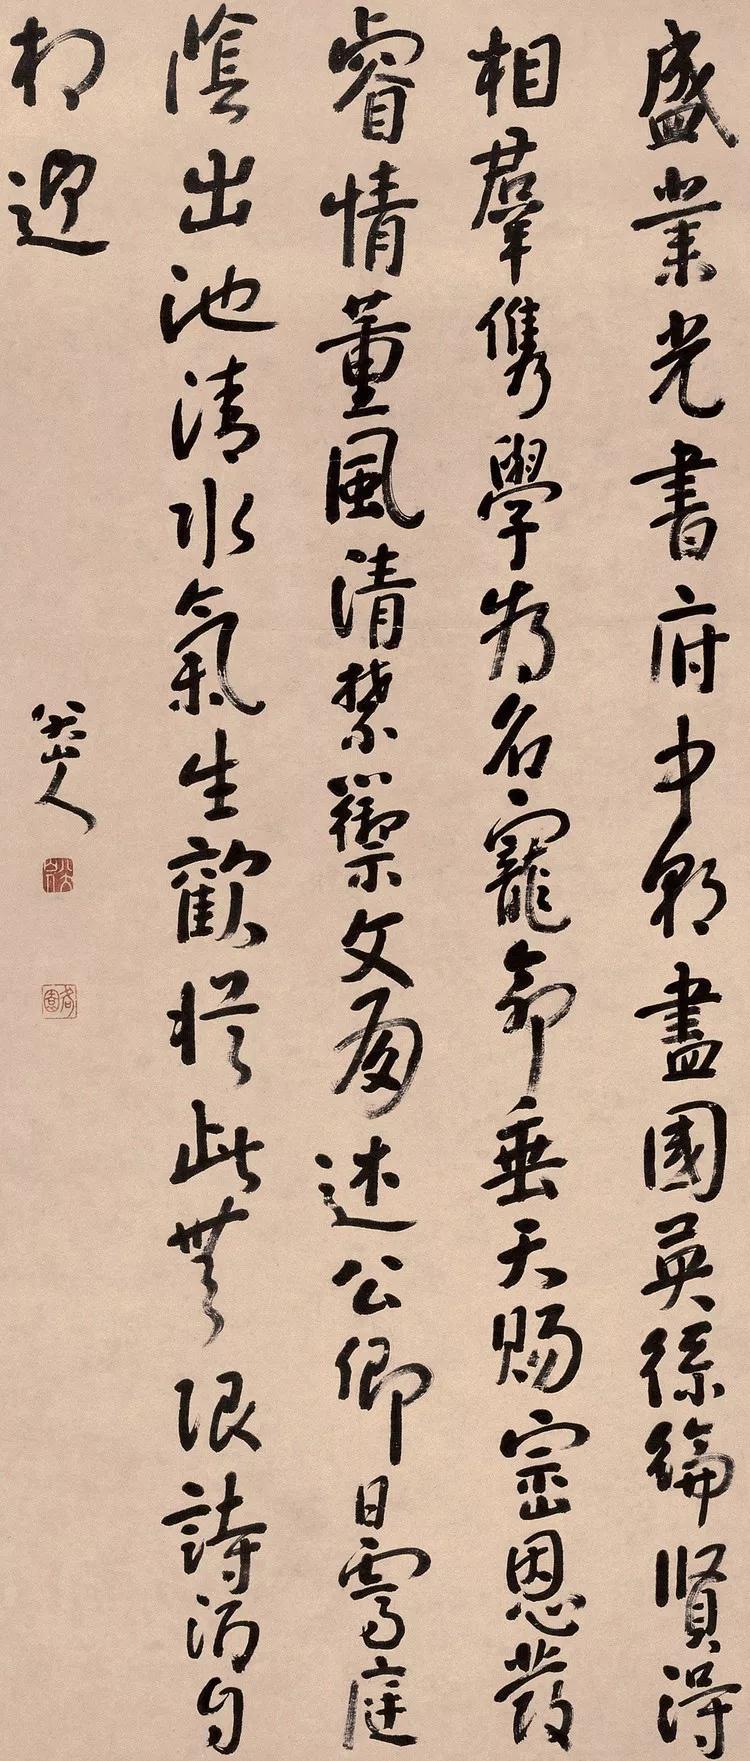 盛業光書府中朝盡國英絲綸賢得
相羣儁學為名寵命垂天賜崇恩發
睿情董風清禁籞文述公卿日霽庭
陰出池清水氣生歡此無限詩酒自
相迎
八大山人